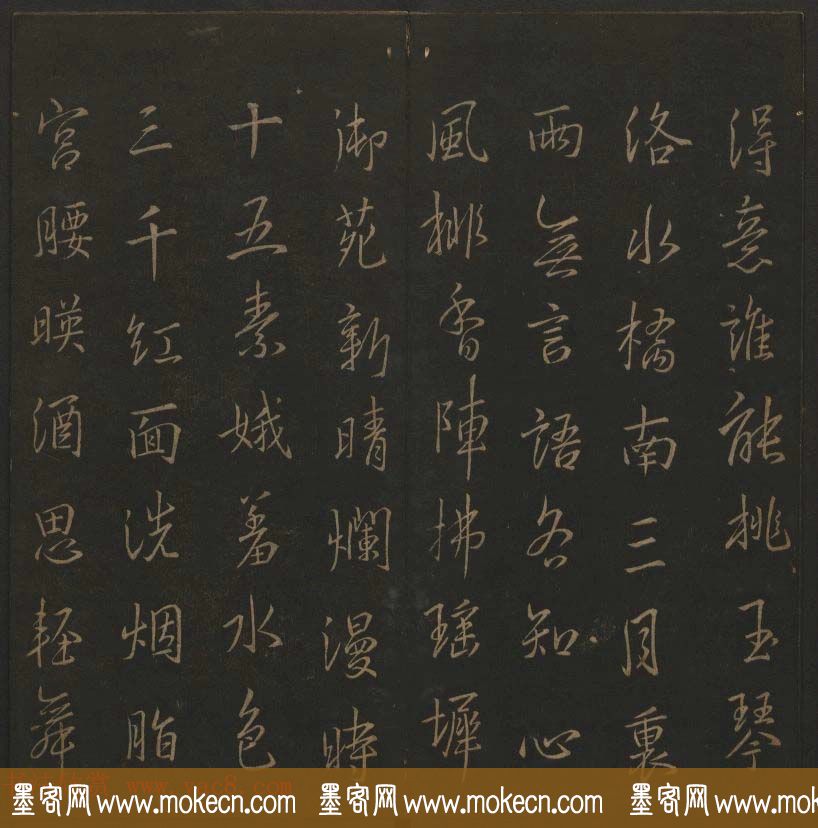 得意誰能挑玉琴
洛水橋南三月裏
兩無言語各知心
風梳香陣拂瑤墀
御苑新晴爛漫時
十五素娥羞水色
三千紅面洗烟脂
宮腰暎酒思輕舞
www.yac8.com
墨客网 www.mokecn.com 墨客网 www.mokecn.com 墨客网 www.mokecn.com